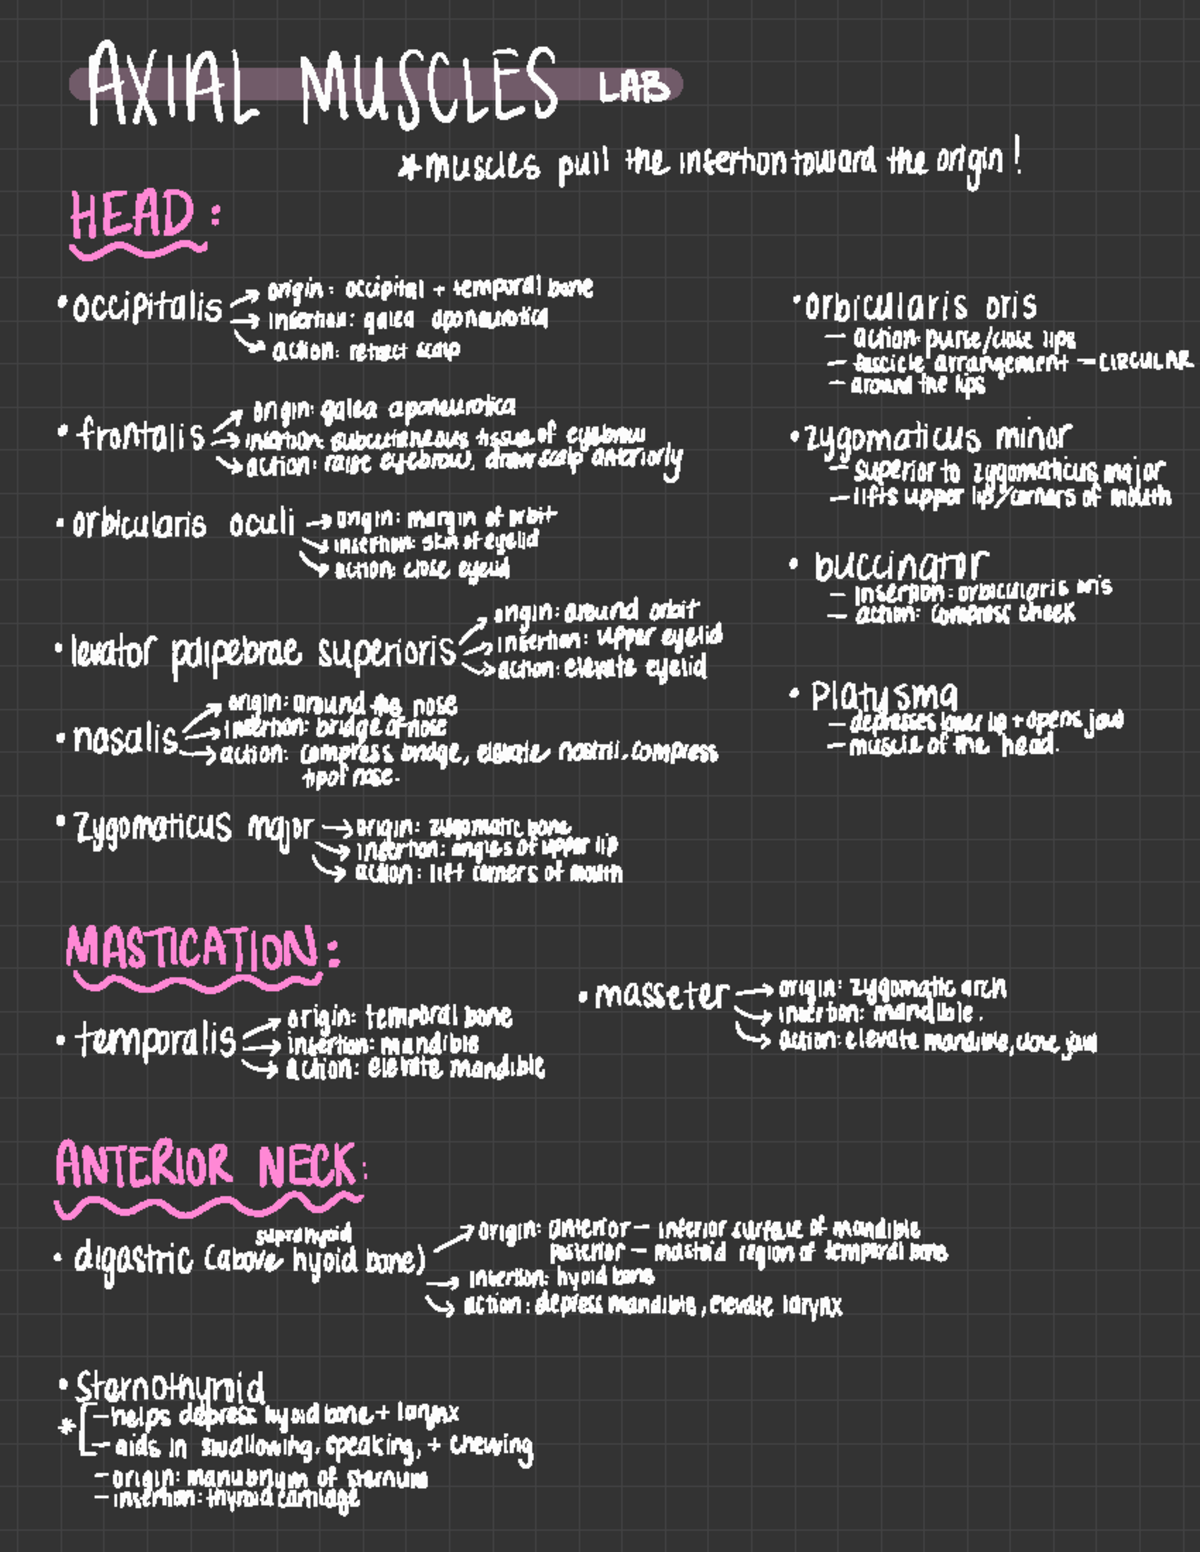 AXIAL MUSCLES LAB
*muscles pull the insertion toward the origin!
HEAD:
•occipitalis
→ origin: occipital + temporal bone
→ insertion: galea aponeurotica
→ action: retract scalp
•frontalis
→ origin: galea aponeurotica
→ insertion: subcutaneous tissue of eyebrow
→ action: raise eyebrow, draw scalp anteriorly
•orbicularis oculi
→ origin: margin of orbit
→ insertion: skin of eyelid
→ action: close eyelid
•levator palpebrae superioris
→ origin: around orbit
→ insertion: upper eyelid
→ action: elevate eyelid
•nasalis
→ origin: around the nose
→ insertion: bridge of nose
→ action: compress bridge, elevate nostril, compress
tip of nose.
•Zygomaticus major
→ origin: zygomatic bone
→ insertion: angles of upper lip
→ action: lift corners of mouth
•orbicularis oris
— action: purse/close lips
— fascicle arrangement — CIRCULAR
— around the lips
•zygomaticus minor
— superior to zygomaticus major
— lifts upper lip/corners of mouth
• buccinator
— insertion: orbicularis oris
— action: compress cheek
• Platysma
— depresses lower lip + opens jaw
— muscle of the head.
MASTICATION:
•temporalis
→ origin: temporal bone
→ insertion: mandible
→ action: elevate mandible
•masseter
→ origin: zygomatic arch
→ insertion: mandible.
→ action: elevate mandible, close jaw
ANTERIOR NECK:
suprahyoid
• digastric (above hyoid bone)
→ origin: anterior — inferior surface of mandible
posterior — mastoid region of temporal bone
→ insertion: hyoid bone
→ action: depress mandible, elevate larynx
•Sternothyroid
* — helps depress hyoid bone + larynx
— aids in swallowing, speaking, + chewing
— origin: manubrium of sternum
— insertion: thyroid cartilage